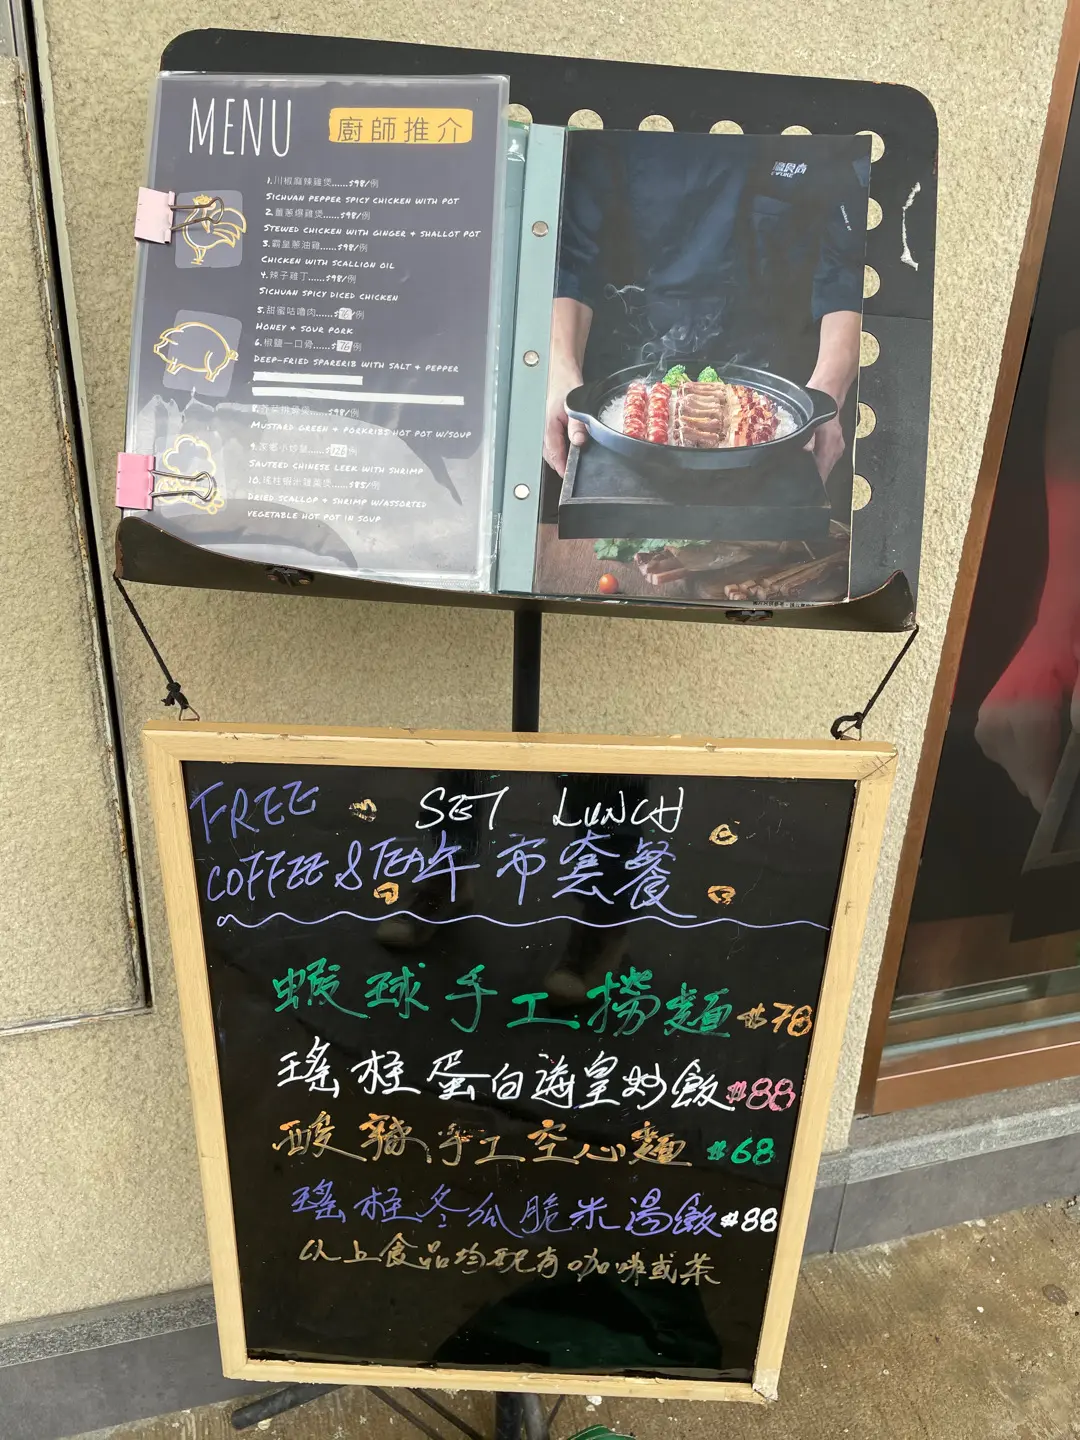 MENU 廚師推介
1.川椒麻辣雞煲......$98/例
SICHUAN PEPPER SPICY CHICKEN WITH POT
2.薑蔥爆雞煲......$98/例
STEWED CHICKEN WITH GINGER & SHALLOT POT
3.霸皇蔥油雞......$98/例
CHICKEN WITH SCALLION OIL
4.辣子雞丁......$98/例
SICHUAN SPICY DICED CHICKEN
5.甜蜜咕嚕肉......$/例
HONEY & SOUR PORK
6.椒鹽一口骨......$76/例
DEEP-FRIED SPARERIB WITH SALT & PEPPER
8.芥菜排骨煲......$98/例
MUSTARD GREEN & PORKRIBS HOT POT W/SOUP
9.小炒......$128/例
SAUTEED CHINESE LEEK WITH SHRIMP
10.瑤柱蝦米雜菜煲......$85/例
DRIED SCALLOP & SHRIMP W/ASSORTED
VEGETABLE HOT POT IN SOUP
FREE SET LUNCH
COFFEE & TEA 午市套餐
蝦球手工撈麵 $78
瑤柱蛋白海皇炒飯 $88
酸辣手工空心麵 $68
瑤柱冬瓜脆米湯飯 $88
以上食品均配有咖啡或茶